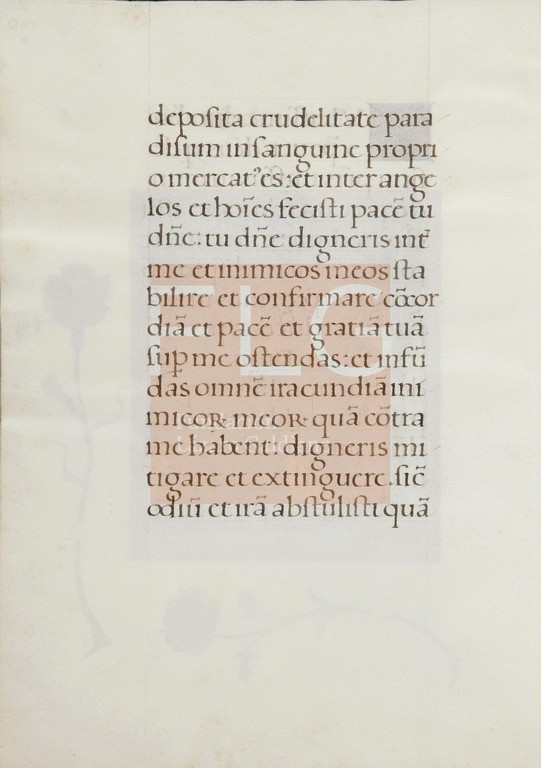 depoſita crudelitate para
diſum in ſanguine propri
o mercat’ es: et inter ange
los et hoīes feciſti pacē tu
dn̄e: tu dn̄e digneris int̄
me et inimicos meos ſta
bilire et confirmare cōcor
diā et pacē et gratiā tuā
ſup me oſtendas: et infū
das omnē iracundiā ini
micoꝝ meoꝝ quā cōtra
me habent digneris mi
tigare et extinguere. ſic̄
odiū et irā abſtuliſti quā
FLG